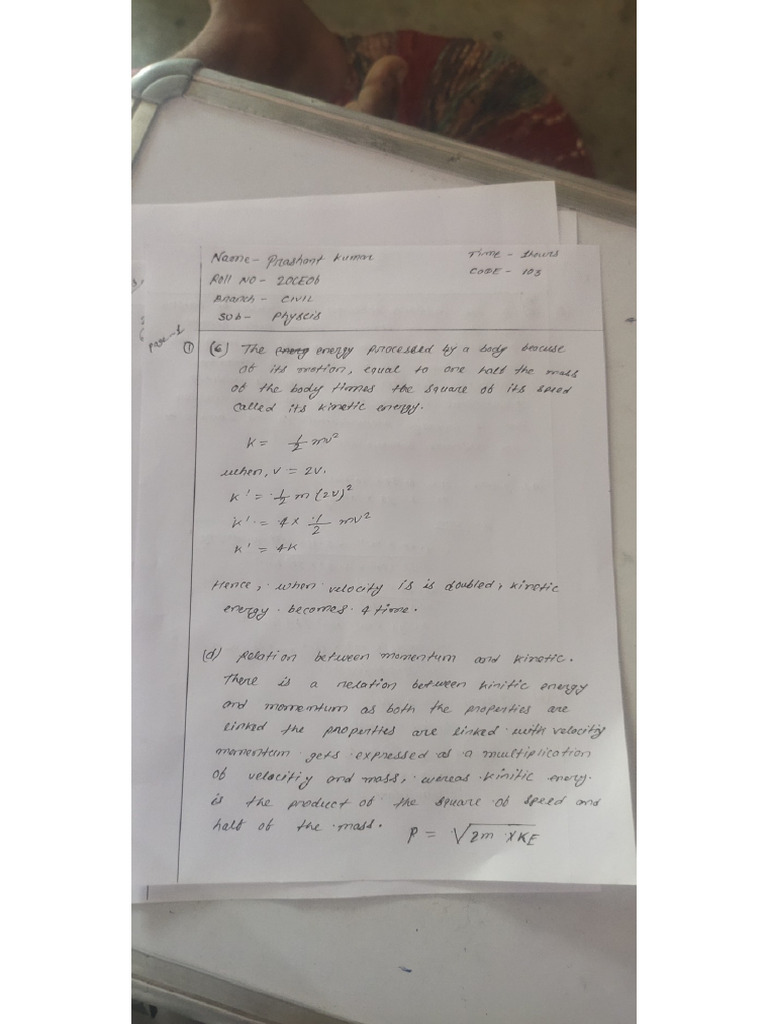 Name- Prashant Kumar
Time - 1hours
Roll No - 20CE06
CODE - 103
Branch - CIVIL
Sub- Physcis
Page-1
① (c) The energy processed by a body beacuse
of its motion, equal to one half the mass
of the body times the square of its speed
called its kinetic energy.
K = 1/2 mv²
when, v = 2v.
K' = 1/2 m (2v)²
K' = 4 x 1/2 mv²
K' = 4K
Hence, when velocity is is doubled, kinetic
energy becomes 4 time.
(d) Relation between momentum and kinetic.
There is a relation between kinitic energy
and momentum as both the properties are
linked the properties are linked with velocitiy
momentum gets expressed as a multiplication
of velocitiy and mass, wereas kinitic energy.
is the product of the square of speed and
half of the mass.
P = √2m x KE